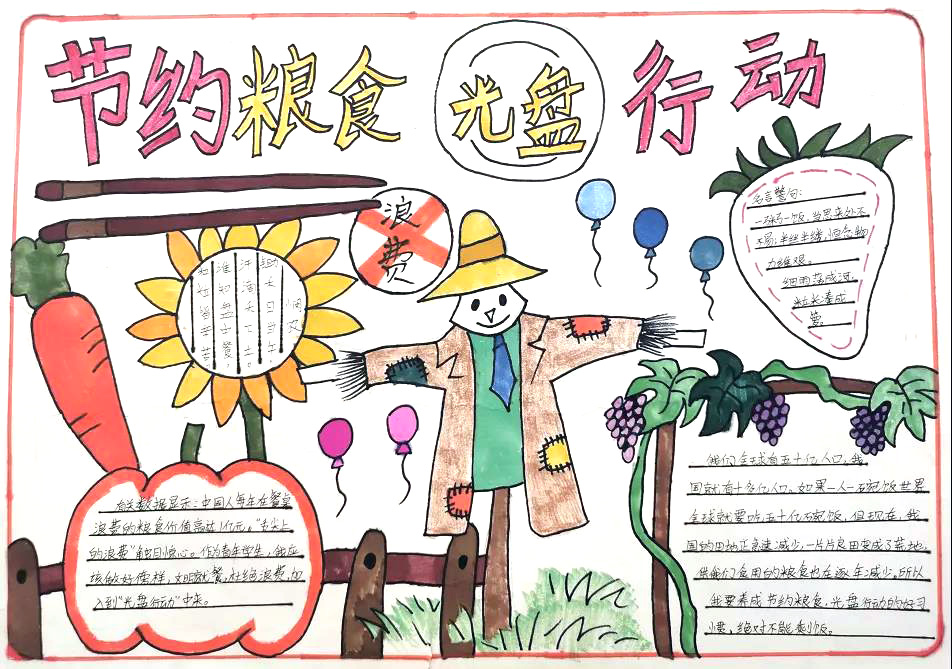 节约粮食 光盘 行动
浪费
锄禾日当午，
汗滴禾下土。
谁知盘中餐，
粒粒皆辛苦。
名言警句：
一粥一饭，当思来处不
易；半丝半缕，恒念物
力维艰。
细雨落成河，
粒米凑成
箩。
有关数据显示：中国人每年在餐桌
浪费的粮食价值高达 亿元。“舌尖上
的浪费”触目惊心。作为青年学生，我应
该做好榜样，文明就餐，杜绝浪费，加
入到“光盘行动”中来。
我们全球有五十亿人口，我
国就有十多亿人口。如果一人一石碗饭世界
全球就要吃五十亿石碗饭，但现在，我
国的田地正急速减少，一片片良田变成了荒地，
供我们食用的粮食也在逐年减少。所以
我要养成节约粮食，光盘行动的好习
惯，绝对不能剩饭。